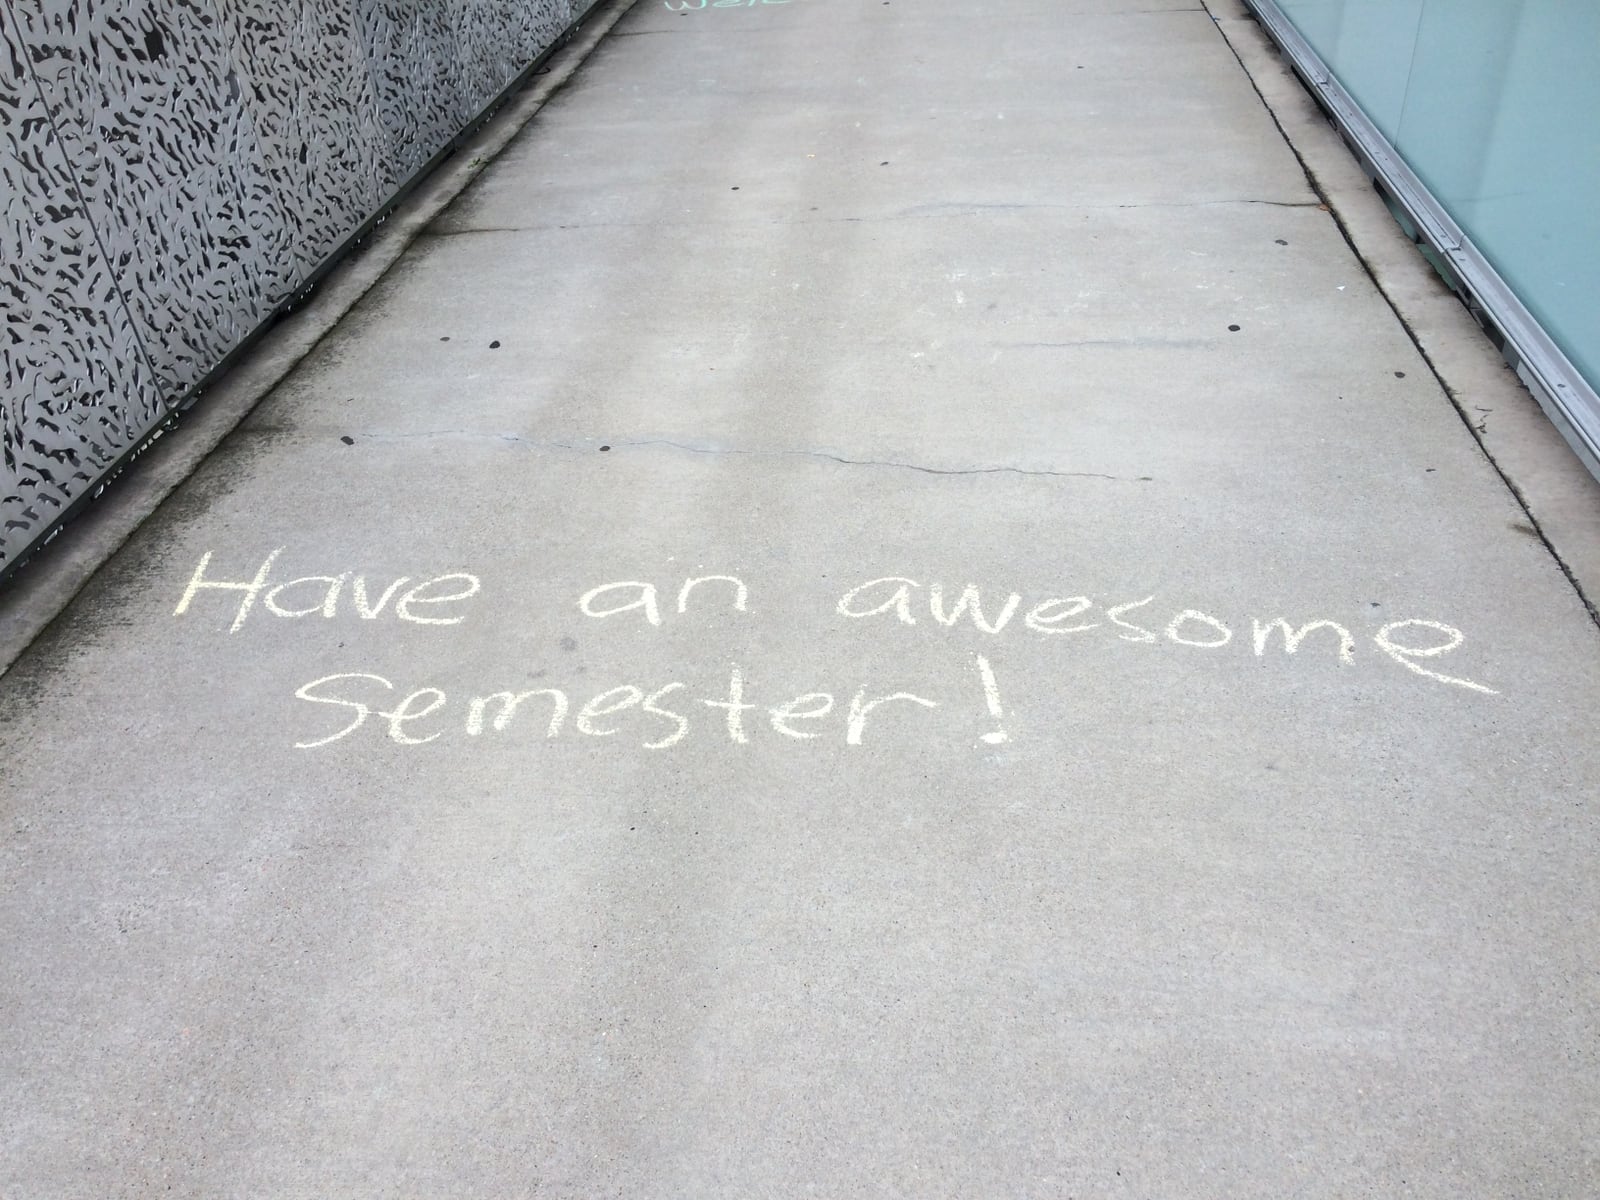 Have an awesome
Semester!